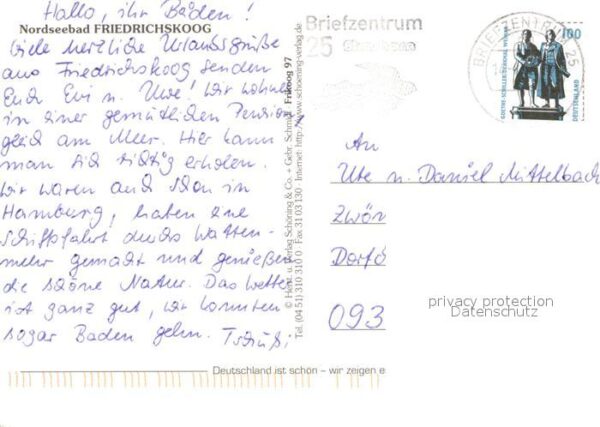 Hallo, ihr Beiden!
Nordseebad FRIEDRICHSKOOG
Viele herzliche Urlaubsgrüße
aus Friedrichskoog senden
Euch Evi u. Uwe! Wir wohnen
in einer gemütlichen Pension
gleich am Meer. Hier kann
man sich richtig erholen.
Wir waren auch schon in
Hamburg, haben eine
Schiffsfahrt durchs Watten-
meer gemacht und genießen
die schöne Natur. Das Wetter
ist ganz gut, wir konnten
sogar Baden gehn. Tschüß;
© Herst. u. Verlag Schöning & Co. + Gebr. Schmidt Frikoog 97
Tel. (04 51) 310 310 0 · Fax 31 03 130 · Internet: http://www.schoening-verlag.de
Briefzentrum
25
BRIEFZENTRUM 25
100
GOETHE-SCHILLER-DENKMAL WEIMAR
DEUTSCHLAND
An
Ute u. Daniel Mittelbach
Zwön
Dorfs
093
privacy protection
Datenschutz
Deutschland ist schön – wir zeigen e